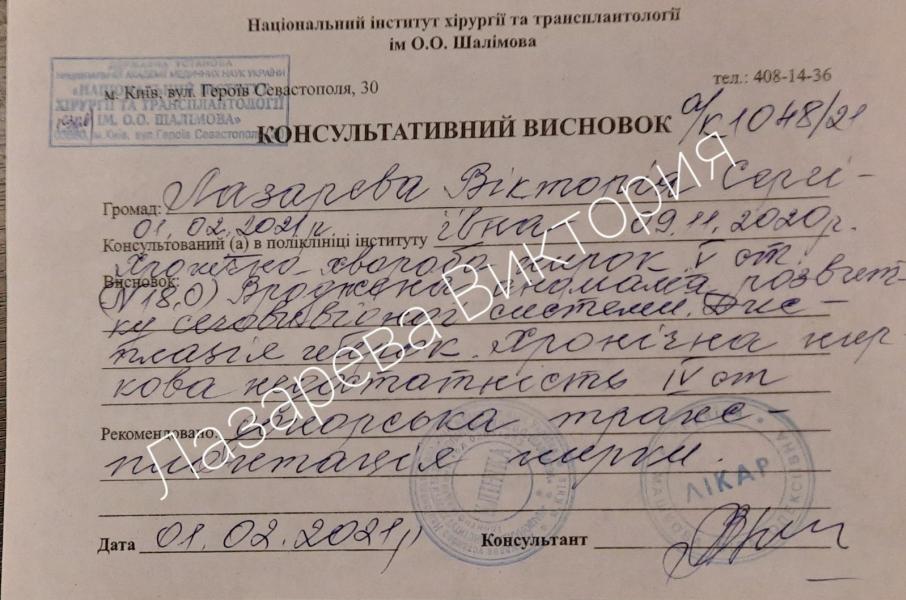 Національний інститут хірургії та трансплантології
ім О.О. Шалімова
ДЕРЖАВНА УСТАНОВА
НАЦІОНАЛЬНОЇ АКАДЕМІЇ МЕДИЧНИХ НАУК УКРАЇНИ
«НАЦІОНАЛЬНИЙ
ХІРУРГІЇ ТА ТРАНСПЛАНТОЛОГІЇ
ІМ. О.О. ШАЛІМОВА»
м. Київ, вул. Героїв Севастополя
м. Київ, вул. Героїв Севастополя, 30
тел.: 408-14-36
КОНСУЛЬТАТИВНИЙ ВИСНОВОК а/к 1048/21
Громад: Лазарєва Вікторія Сергі-
івна 09.11.2020р.
Консультований (а) в поліклініці інституту 01.02.2021р.
Висновок: Хронічна хвороба нирок V ст.
(N 18.0) Вроджена аномалія розвит-
ку сечовивідної системи. Дис-
плазія нирок. Хронічна нир-
кова недостатність IV ст
Рекомендовано: донорська транс-
плантація нирки.
Дата 01.02.2021р
Консультант
ЛІКАР
Лазарева Виктория